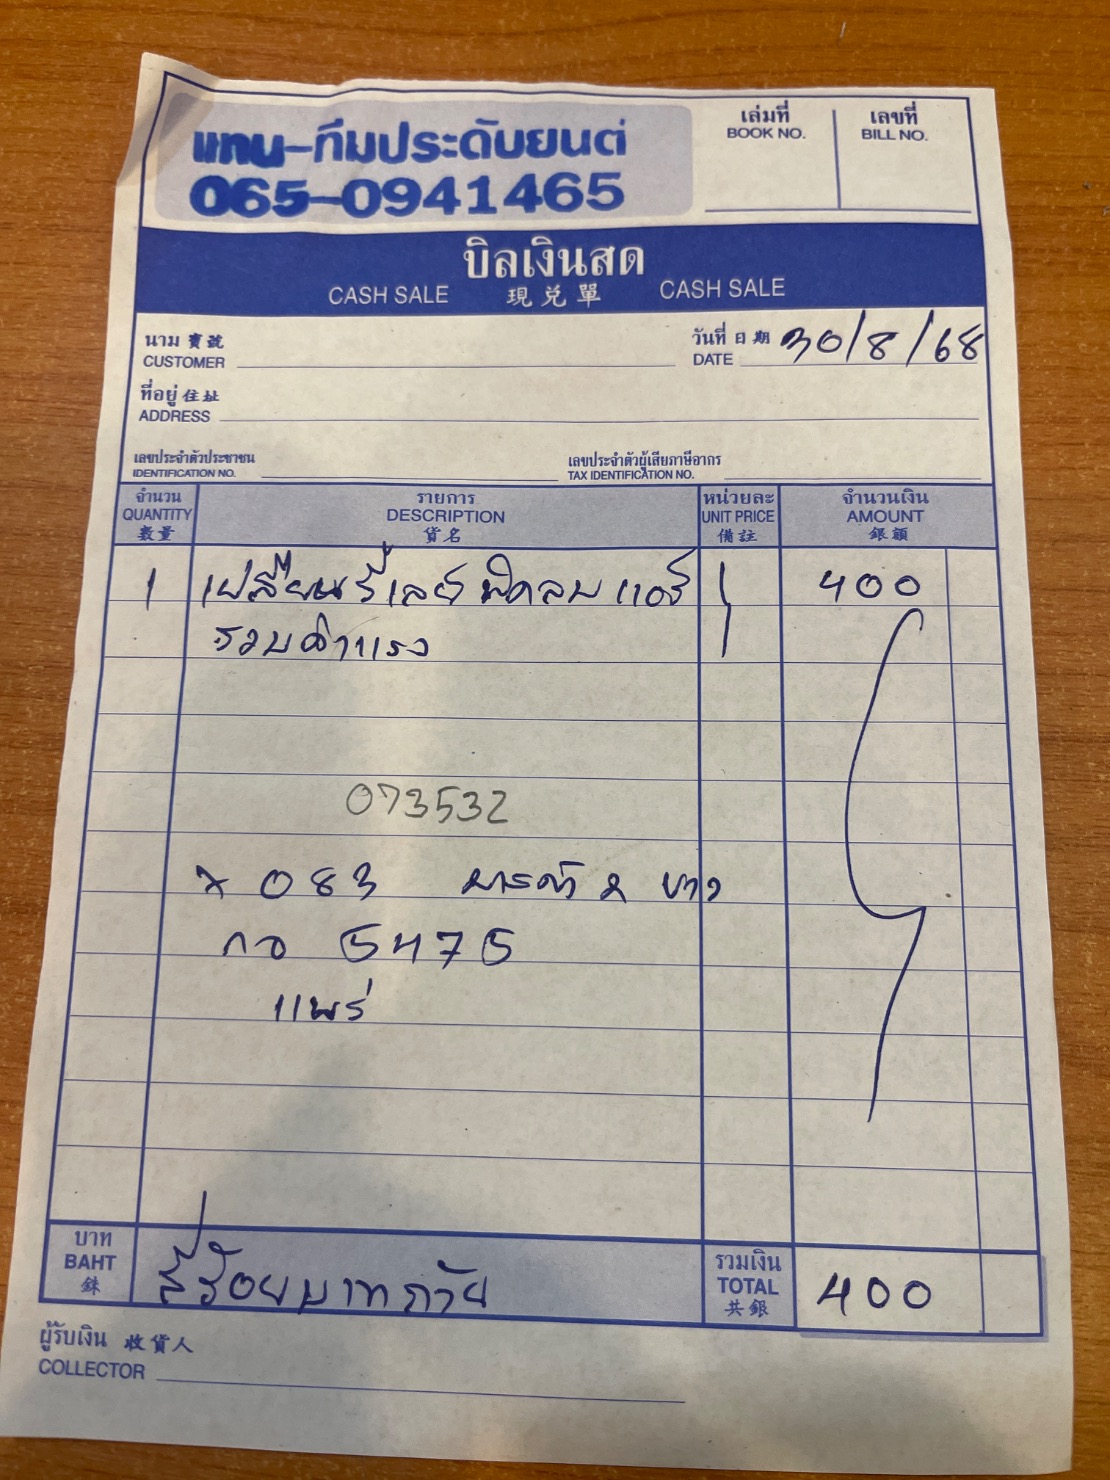 แทน-ทีมประดับยนต์
065-0941465
เล่มที่
BOOK NO.
เลขที่
BILL NO.
บิลเงินสด
CASH SALE 現兑單 CASH SALE
นาม 賣號
CUSTOMER
วันที่ 日期 30/8/68
DATE
ที่อยู่ 住址
ADDRESS
เลขประจำตัวประชาชน
IDENTIFICATION NO.
เลขประจำตัวผู้เสียภาษีอากร
TAX IDENTIFICATION NO.
จำนวน รายการ หน่วยละ จำนวนเงิน
QUANTITY DESCRIPTION UNIT PRICE AMOUNT
數量 貨名 備註 銀額
1 เปลี่ยนรีเลย์ พัดลม แอร์ 400
รวมค่าแรง
073532
083
กอ 5475
แพร่
บาท
BAHT
銖
สี่ร้อยบาทถ้วย
รวมเงิน
TOTAL
共銀
400
ผู้รับเงิน 收貨人
COLLECTOR